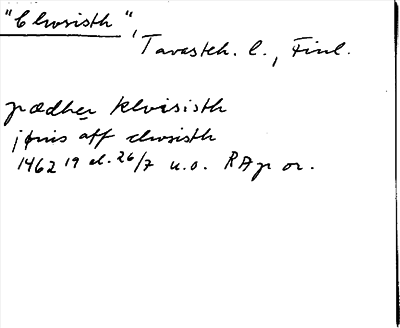 "Clwsisth",
Tavasteh. l., Finl.
pædher klwsisth
jønis aff clwsisth
1462 19 el. 26/7 u.o. RAp or.